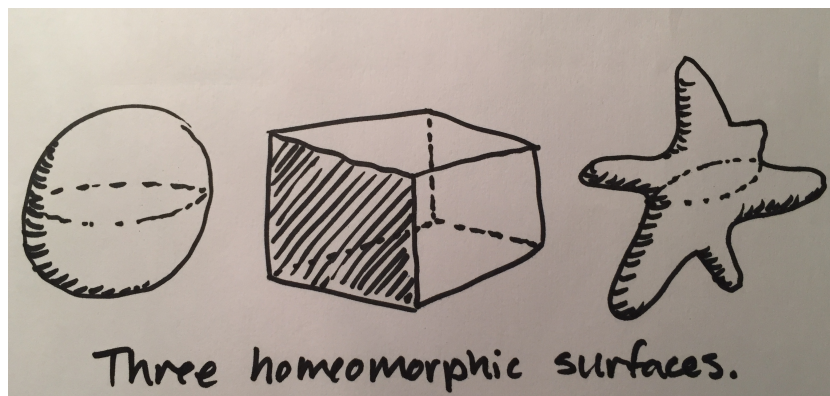 Three homeomorphic surfaces.